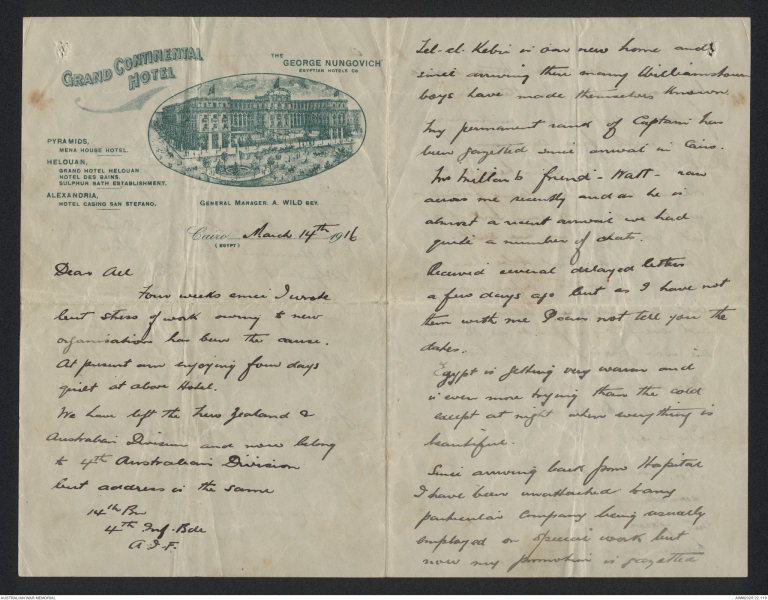 GRAND CONTINENTAL
HOTEL
THE
GEORGE NUNGOVICH
EGYPTIAN HOTELS CO
PYRAMIDS,
MENA HOUSE HOTEL.
HELOUAN,
GRAND HOTEL HELOUAN.
HOTEL DES BAINS.
SULPHUR BATH ESTABLISHMENT.
ALEXANDRIA,
HOTEL CASINO SAN STEFANO.
GENERAL MANAGER. A. WILD BEY.
Cairo, March 14th 1916
(EGYPT)
Dear All
Four weeks since I wrote
but stress of work owing to new
organisation has been the cause.
At present am enjoying four days
quiet at above Hotel.
We have left the New Zealand &
Australian Division and now belong
to 4th Australian Division
but address is the same
14th Bn
4th Inf. Bde
A.I.F.
Tel-el-Kebir is our new home and
since arriving there many Williamstown
boys have made themselves known
My permanent rank of Captain has
been gazetted since arrival in Cairo.
friend - Watt - ran
across me recently and as he is
almost a recent arrival we had
quite a number of chats.
Received several delayed letters
a few days ago but as I have not
them with me I can not tell you the
dates.
Egypt is getting very warm and
is even more trying than the cold
except at night when everything is
beautiful.
Since arriving back from Hospital
I have been unattached to any
particular Company being usually
employed on special work but
now my promotion is gazetted
AUSTRALIAN WAR MEMORIAL